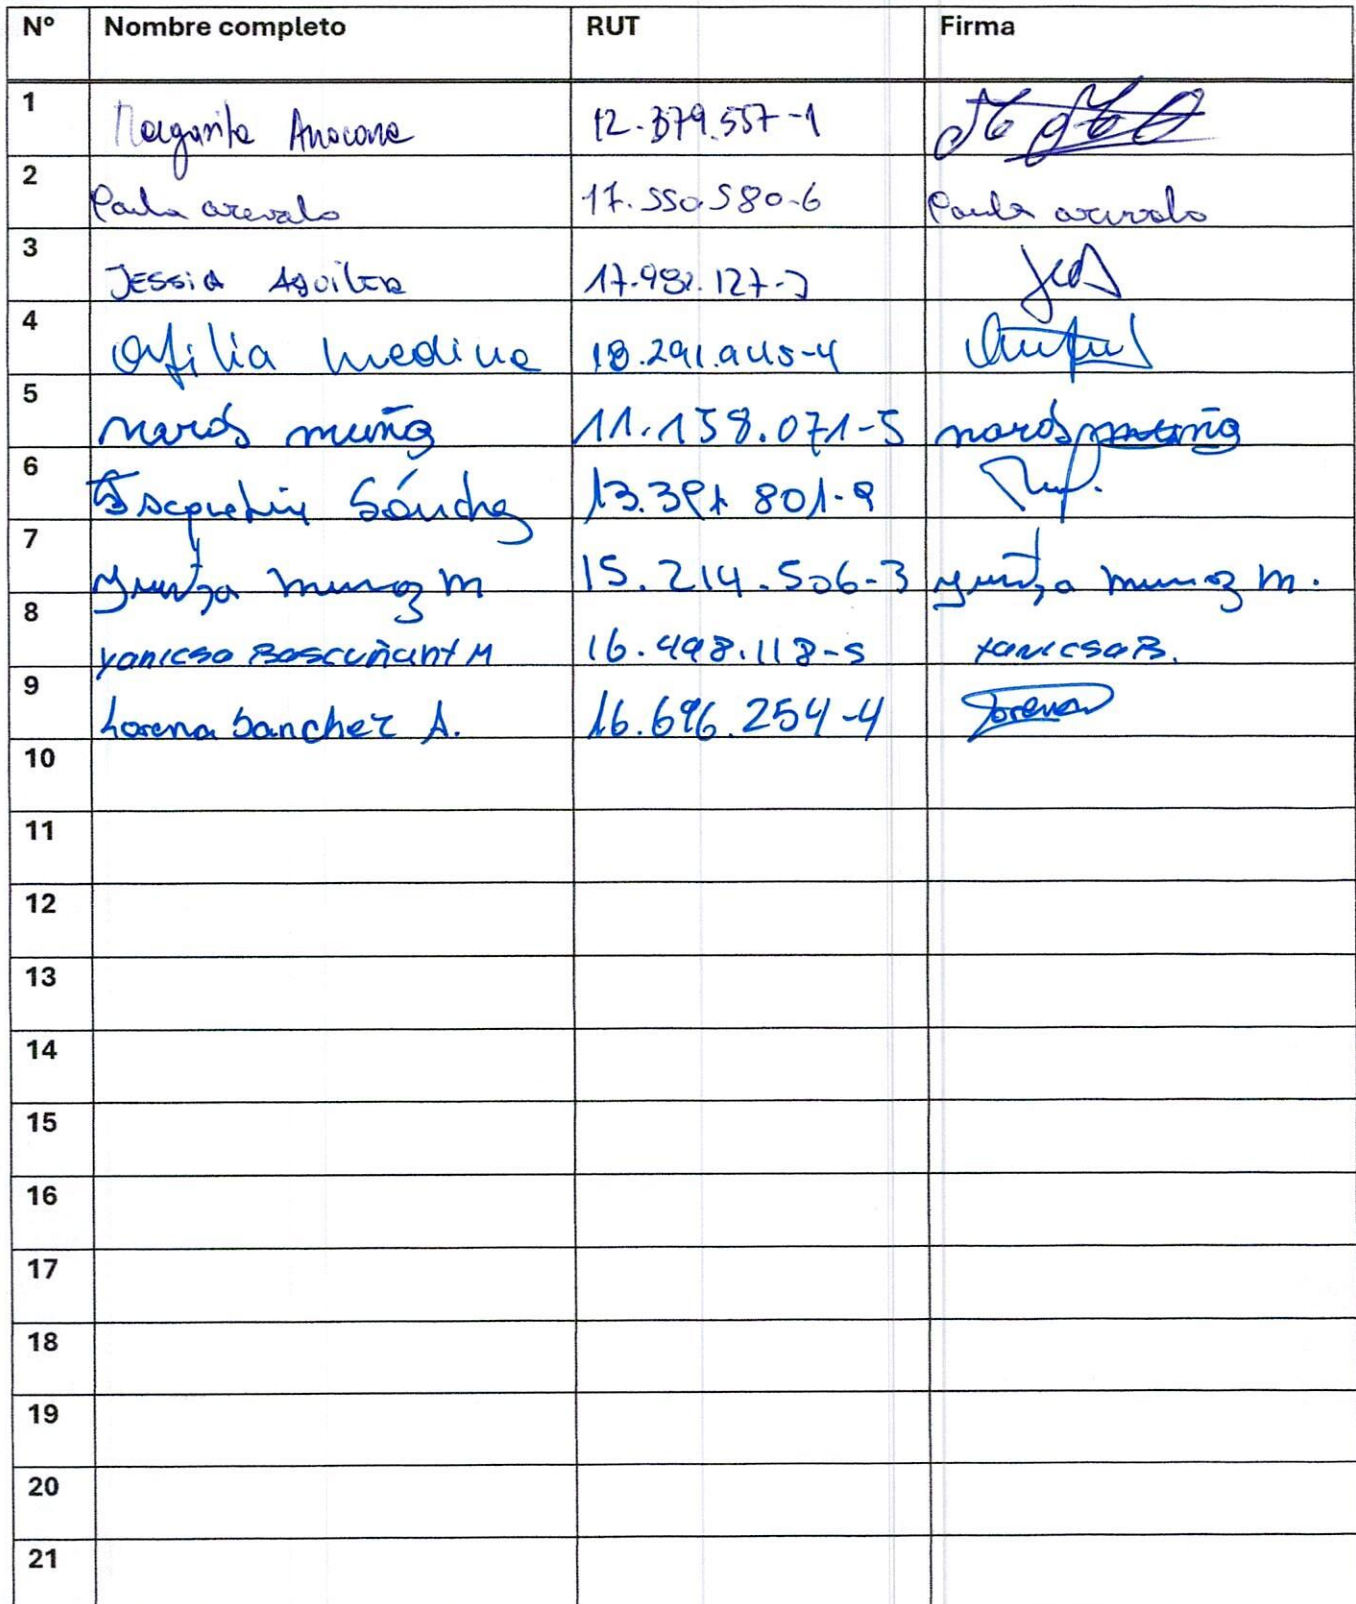 Nº Nombre completo RUT Firma
1 Margarita Anacona 12.379.557-1
2 Paula arevalo 17.550.580-6 Paula arevalo
3 JESSiCA AguileRa 17.982.127-
4 Ofilia Medina 18.291.945-4
5 muñoz 11.158.071-5
6 Sánchez 13.391 801-9
7 muñoz m 15.214.506-3 muñoz m.
8 Yanicsa Bascuñant M 16.498.118-5 Yanicsa B.
9 Lorena Sanchez A. 16.696.254-4 Lorena
10
11
12
13
14
15
16
17
18
19
20
21